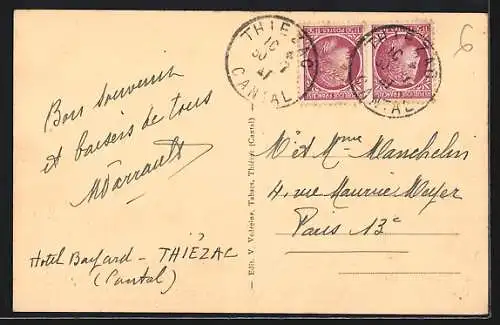 THIEZAC
16 30
7
47
CANTAL
6
Bon souvenir
et baisers de tous
MDarrault
Hotel Bayard - THIÉZAC
(Cantal)
Edit. V. Vedrine, Tabacs, Thiézac (Cantal)
Mr et Mme Manchelin
4, rue Maurice Mayer
Paris 13e